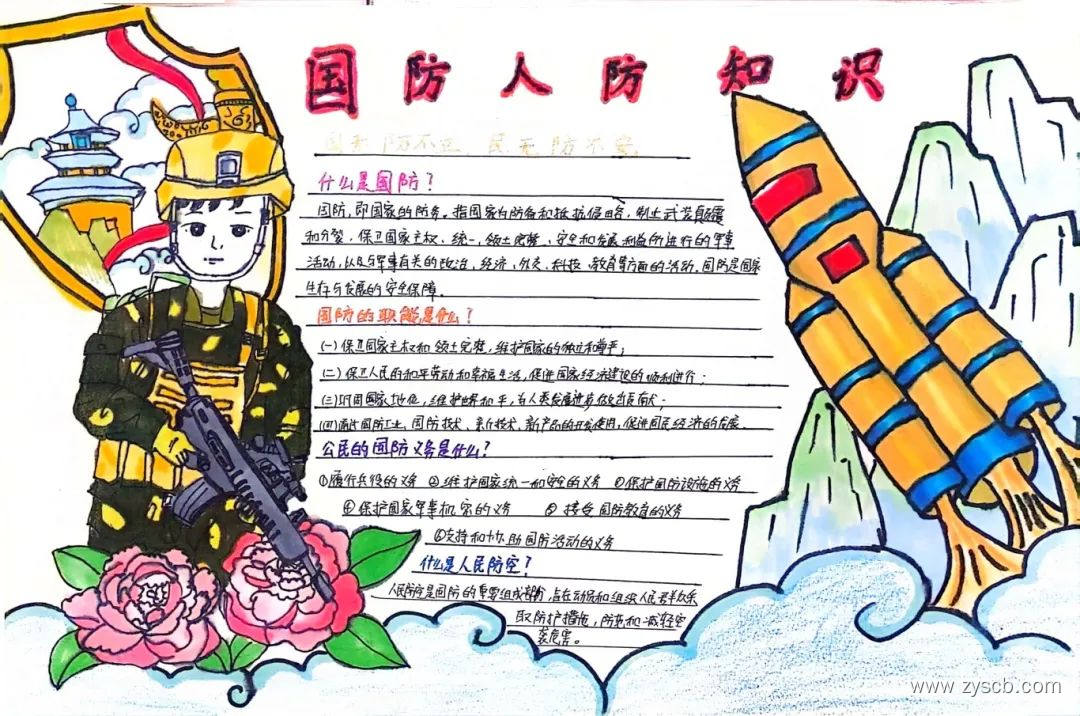 国防人防知识
国无防不立,民无防不安
什么是国防?
国防,即国家的防务。指国家为防备和抵抗侵略,制止武装颠覆
和分裂,保卫国家主权、统一、领土完整、安全和发展利益所进行的军事
活动,以及与军事有关的政治、经济、外交、科技、教育等方面的活动。国防是国家
生存与发展的安全保障。
国防的职能是什么?
(一)保卫国家主权和领土完整,维护国家的独立和尊严;
(二)保卫人民的和平劳动和幸福生活,促进国家经济建设的顺利进行;
(三)巩固国家地位,维护世界和平,为人类发展进步做出贡献;
(四)通过国防工业、国防技术、新技术、新产品的开发使用,促进国民经济的发展。
公民的国防义务是什么?
①履行兵役的义务 ②维护国家统一和安全的义务 ③保护国防设施的义务
④保护国家军事机密的义务 ⑤接受国防教育的义务
⑥支持和协助国防活动的义务
什么是人民防空?
人民防空是国防的重要组成部分,旨在动员和组织人民群众采
取防护措施,防范和减轻空
袭危害。
www.zyscb.com